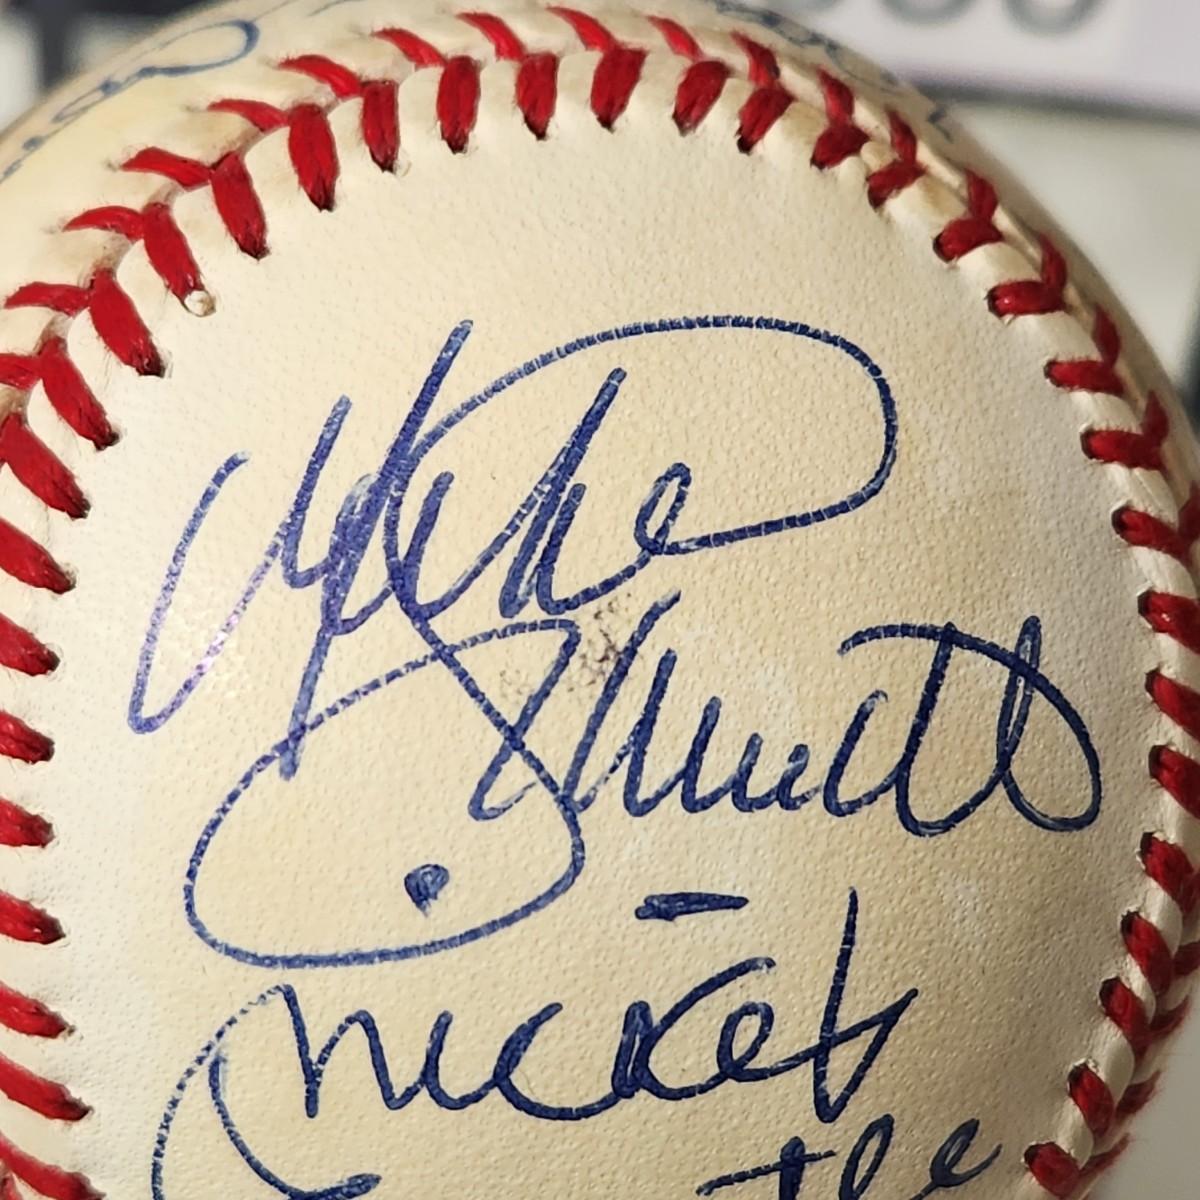 Mike
Schmidt
Mickey
tle